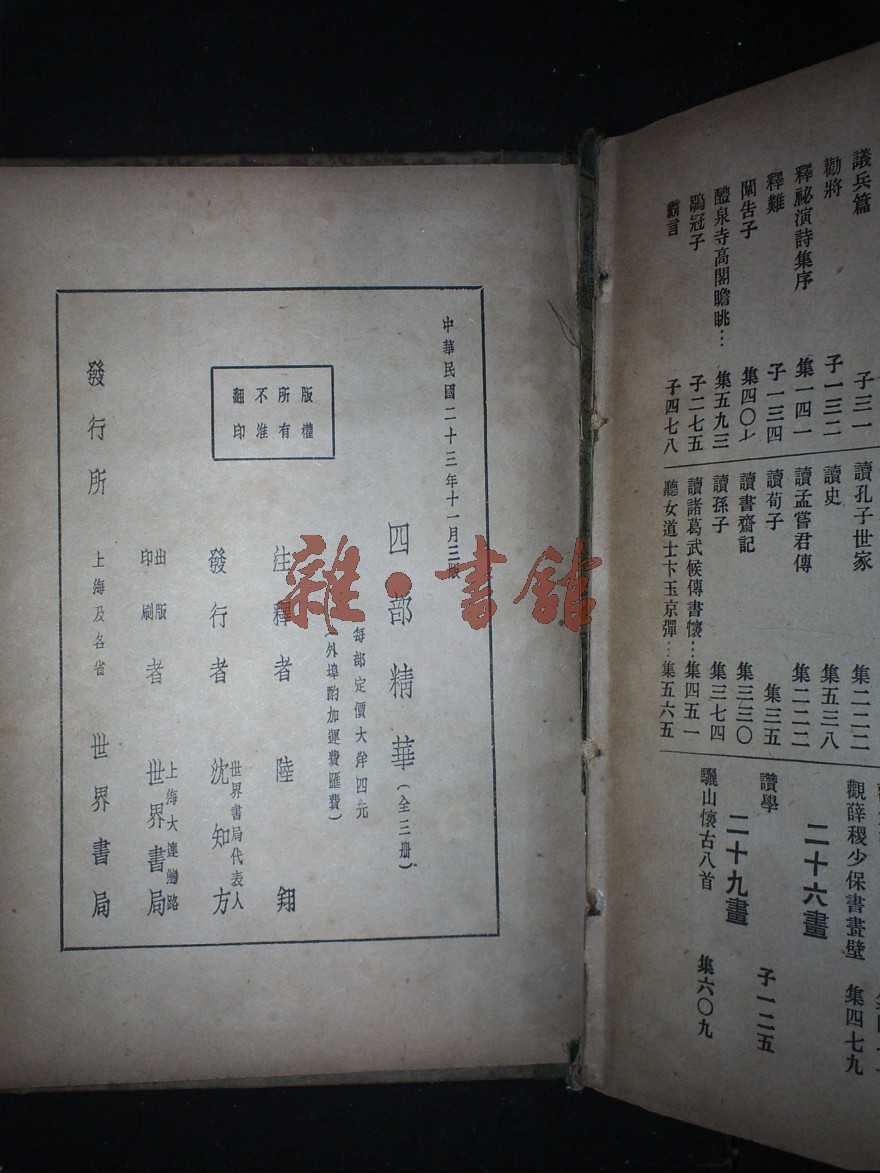 議兵篇 子三一
勸將 子一三二
釋祕演詩集序 集一四一
釋難 子一三四
闡告子 集四〇七
醴泉寺高閣瞻眺… 集五九三
鶡冠子 子二七五
霸言 子四七八
讀孔子世家 集二二二
讀史 集五三八
讀孟嘗君傳 集二二二
讀荀子 集三五
讀書齋記 集三三〇
讀孫子 集三七四
讀諸葛武候傳書懷… 集四五一
聽女道士卞玉京彈… 集五六五
觀薛稷少保書畫壁 集四七九
二十六畫
讚學 子一二五
二十九畫
驪山懷古八首 集六〇九
中華民國二十三年十一月三版
四部精華(全三册)
每部定價大洋四元
外埠酌加運費匯費)
版權
所有
不准
翻印
注釋者 陸翔
發行者 世界書局代表人 沈知方
出版
印刷 者 上海大連灣路 世界書局
發行所 上海及各省 世界書局
雜·書館